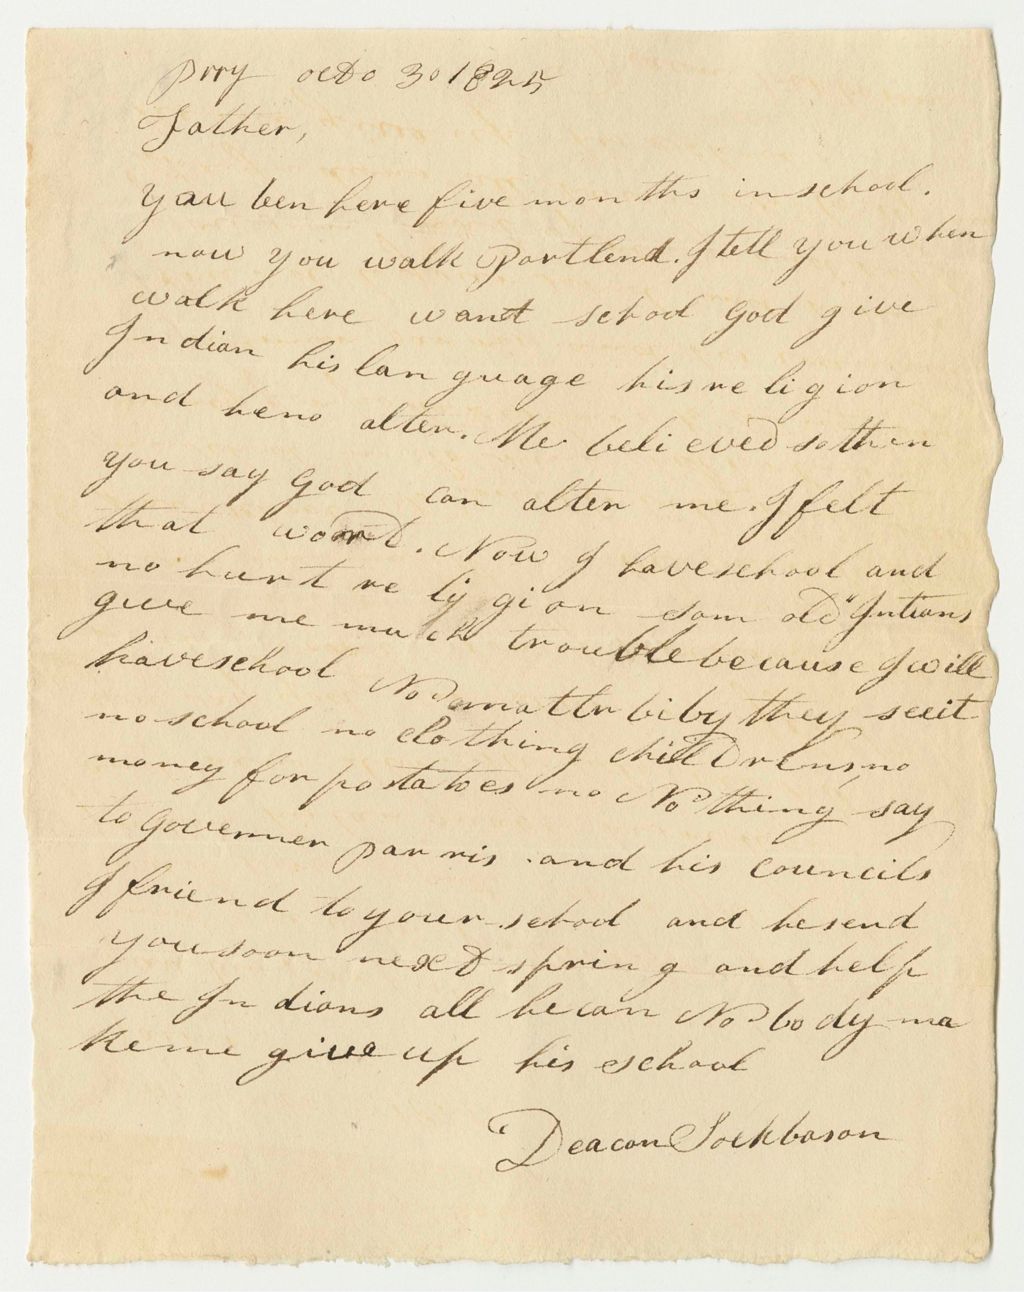 prry octo 30 1825
Father,
you ben here five months in school.
now you walk Portlend. I tell you when
walk here want school God give
Indian his language his religion
and he no alter. Me believed so then
you say God can alter me. I felt
that word. Now I have school and
no hurt religion som old Intians
give me much trouble because I will
have school No matter bi by they see it
no school no clothing childrens, no
money for postatoes no No thing say
to Governner parris and his councils
I friend to your school and he send
you soon next spring and help
the Indians all he can No body ma
ke me give up his school
Deacon Sockbason